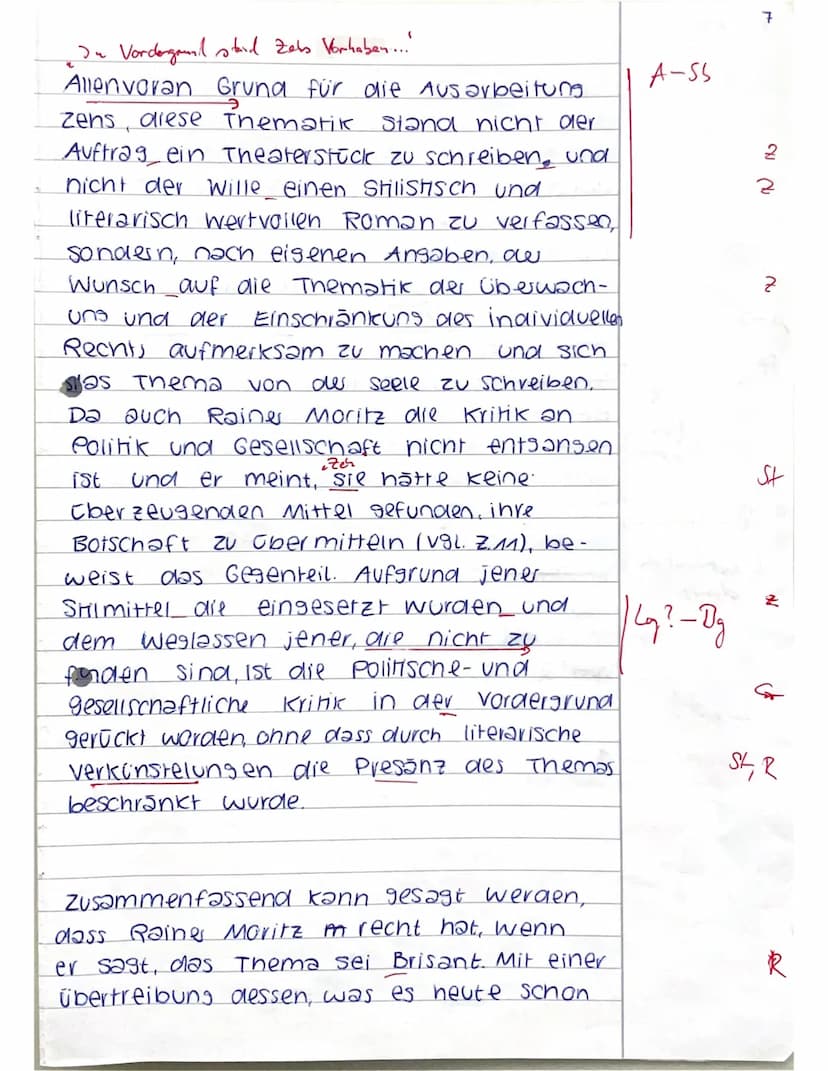 7
"Im Vordergrund stand Zehs Vorhaben..."
Allenvoran Grund für die Ausarbeitung A-Sb
Zehs, diese Thematik stand nicht der
Auftrag ein Theaterstück zu schreiben, und Z
nicht der Wille einen Stilistisch und Z
literarisch wertvollen Roman zu verfassen,
sondern, nach eigenen Angaben, der
Wunsch auf die Thematik der Überwach- Z
ung und der Einschränkung des individuellen
Rechts aufmerksam zu machen und sich
das Thema von der Seele zu schreiben.
Da auch Rainer Moritz die Kritik an
Politik und Gesellschaft nicht entgangen
Zeh
ist und er meint, sie hätte keine St
überzeugenden Mittel gefunden, ihre
Botschaft zu übermitteln (vgl. Z.11), be-
weist das Gegenteil. Aufgrund jener
Stilmittel die eingesetzt wurden und Lg?-Dg Z
dem Weglassen jener, die nicht zu
finden sind, ist die Politische- und
gesellschaftliche Kritik in der Vordergrund G
gerückt worden, ohne dass durch literarische
Verkünstelungen die Presänz des Themas St, R
beschränkt wurde.
Zusammenfassend kann gesagt werden,
dass Rainer Moritz recht hat, wenn
er sagt, das Thema sei Brisant. Mit einer R
Übertreibung dessen, was es heute schon